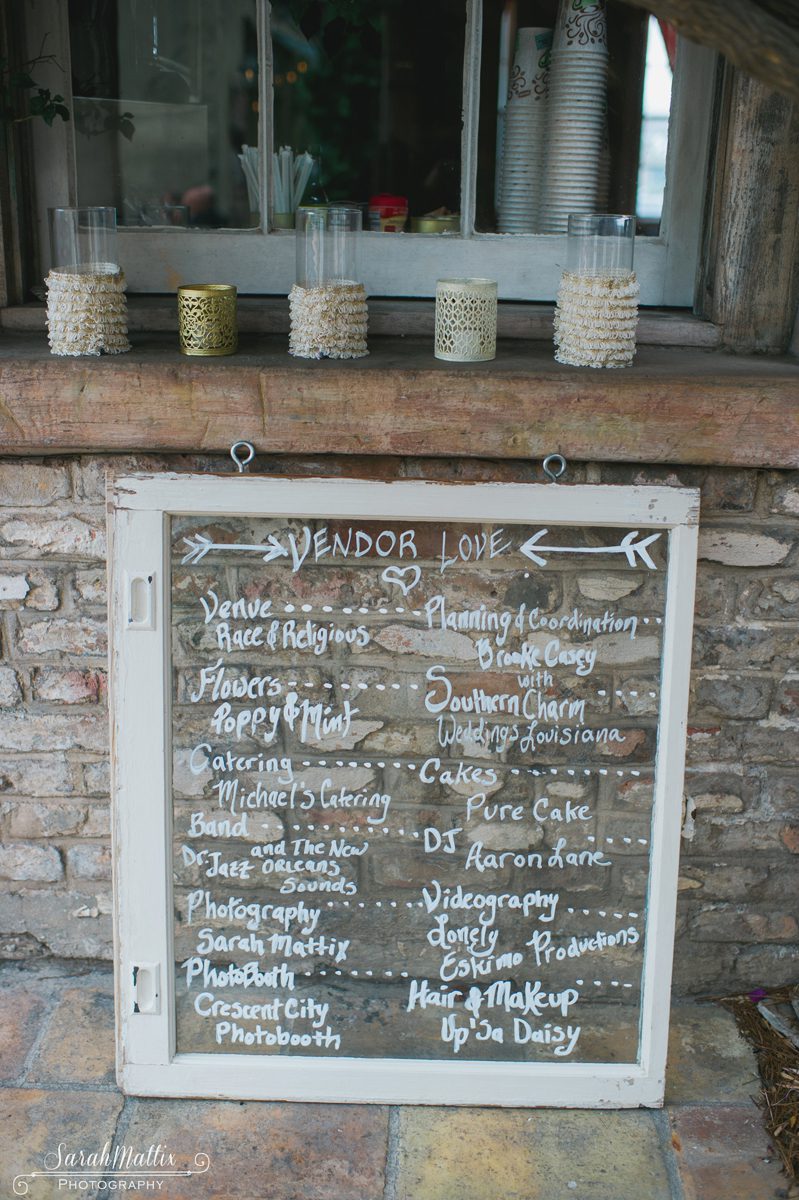 VENDOR LOVE
Venue
Race & Religious
Flowers
Poppy & Mint
Catering
Michael's Catering
Band
Dr. Jazz and The New
Orleans
Sounds
Photography
Sarah Mattix
PhotoBooth
Crescent City
Photobooth
Planning & Coordination
Brooke Casey
with
Southern
Charm
Weddings Louisiana
Cakes
Pure Cake
DJ
Aaron Lane
Videography
Lonely
Eskimo Productions
Hair & Makeup
Up'sa Daisy
SarahMattix
PHOTOGRAPHY